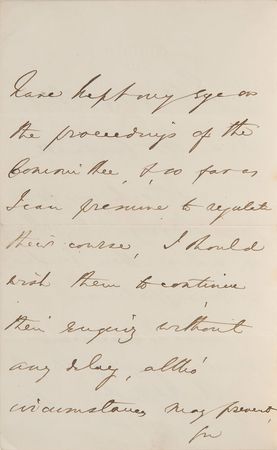 have kept my eye on
the proceedings of the
Committee, & so far as
I can presume to regulate
their course, I should
wish them to continue
their enquiry without
any delay, altho'
circumstances may prevent,